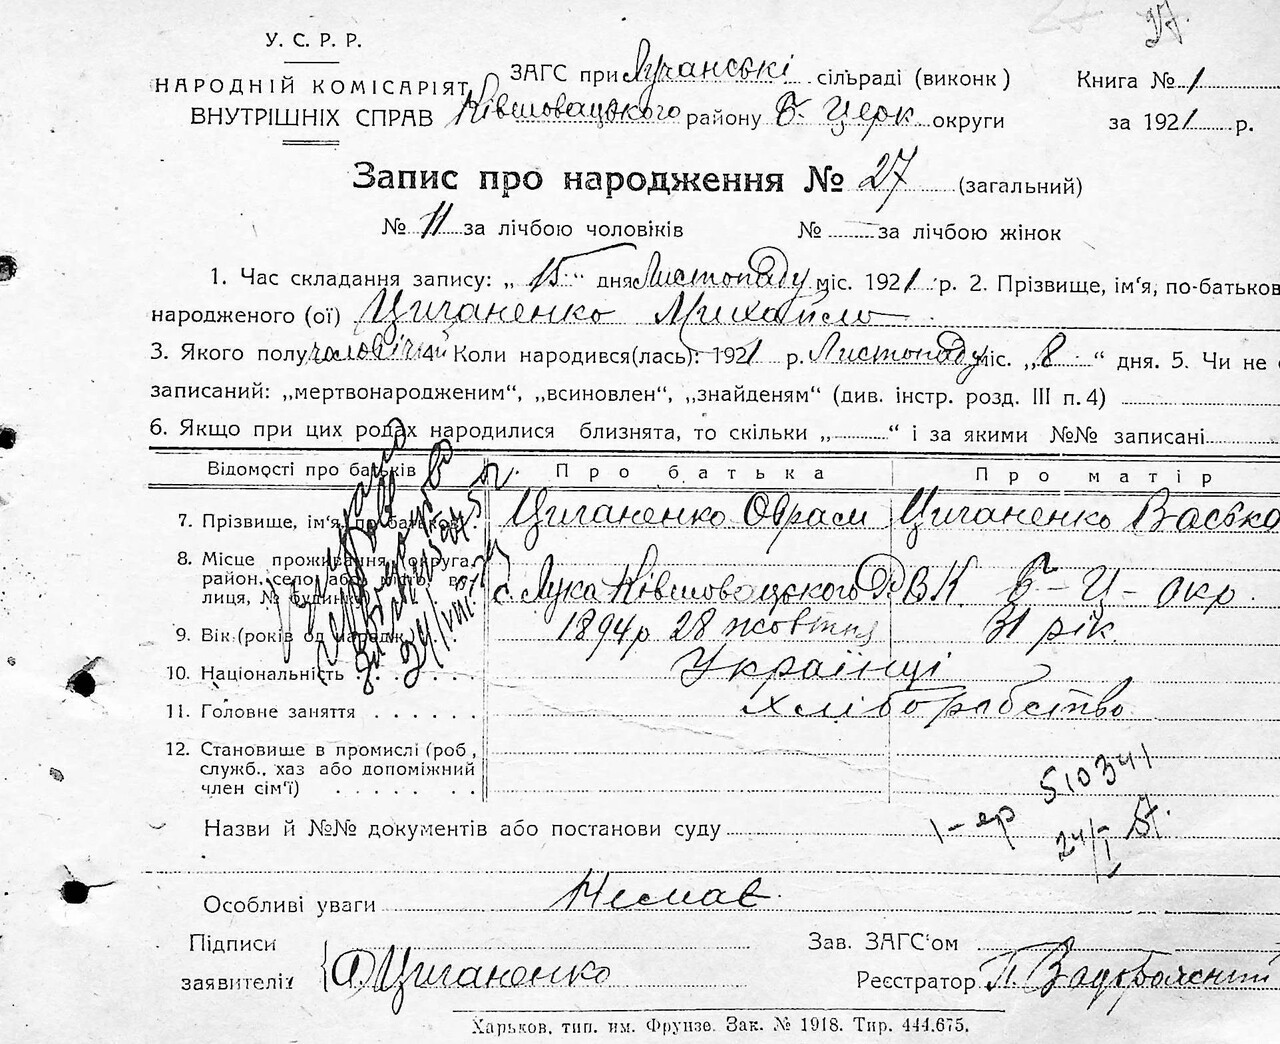 27.
У. С. Р. Р.
НАРОДНІЙ КОМІСАРІЯТ
ВНУТРІШНІХ СПРАВ
ЗАГС при Лучанські сільраді (виконк)
Ківшовацького району Б. Церк округи
Книга № 1
за 1921 р.
Запис про народження № 27 (загальний)
№ 11 за лічбою чоловіків № за лічбою жінок
1. Час складання запису: „15“ дня Листопаду міс. 1921 р. 2. Прізвище, ім'я, по-батьков
народженого (ої) Циганенко Михайло
3. Якого полу чоловічий 4. Коли народився(лась): 1921 р. Листопаду міс. „8“ дня. 5. Чи не
записаний: „мертвонародженим“, „всиновлен“, „знайденям“ (див. інстр. розд. III п. 4)
6. Якщо при цих родах народилися близнята, то скільки „ “ і за якими №№ записані
Відомості про батьків Про батька Про матір
7. Прізвище, ім'я, по батькові Циганенко Циганенко
8. Місце проживання, округа,
район, село або місто, ву-
лиця, № будинку с. Лука Ківшовацького РВК. Б-Ц- окр.
9. Вік (років од народж.) 1894 р. 28 жовтня 31 рік
10. Національність Українці
11. Головне заняття Хліборобство
12. Становище в промислі (роб,
служб., хаз або допоміжний
член сім'ї)
510341
Назви й №№ документів або постанови суду
24/I 57.
Особливі уваги Немає
Підписи
заявителів Циганенко
Зав. ЗАГС'ом
Реєстратор П.
Харьков, тип. им. Фрунзе. Зак. № 1918. Тир. 444.675.